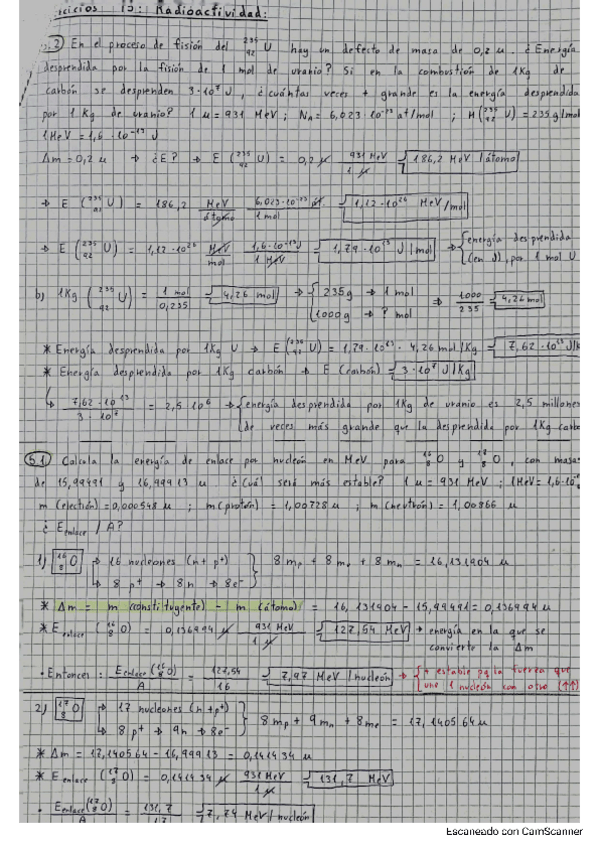 rcicios 13: Radioactividad:
5.2) En el proceso de fisión del ²³⁵₉₂U hay un defecto de masa de 0,2 u. ¿Energía
desprendida por la fisión de 1 mol de uranio? Si en la combustión de 1Kg de
carbón se desprenden 3·10⁷ J, ¿cuántas veces + grande es la energía desprendida
por 1 Kg de uranio? 1 u = 931 MeV ; NA = 6,023·10⁻²³ at/mol ; M(²³⁵₉₂U) = 235 g/mol
1 MeV = 1,6·10⁻¹³ J
Δm = 0,2 u → ¿E? → E (²³⁵₉₂U) = 0,2 u · 931 MeV / 1 u = 186,2 MeV / átomo
→ E (²³⁵₉₂U) = 186,2 MeV/átomo · 6,023·10⁻²³ át/1 mol = 1,12·10²⁶ MeV/mol
→ E (²³⁵₉₂U) = 1,12·10²⁶ MeV/mol · 1,6·10⁻¹³ J/1 MeV = 1,79·10¹³ J/mol → energía desprendida
(en J), por 1 mol U
b) 1Kg (²³⁵₉₂U) = 1 mol/0,235 = 4,26 mol → 235g → 1 mol
1000g → ? mol → 1000/235 = 4,26 mol
* Energía desprendida por 1Kg U → E(²³⁵₉₂U) = 1,79·10¹³ · 4,26 mol/Kg = 7,62·10¹³ J/K
* Energía desprendida por 1Kg carbón → E (carbón) = 3·10⁷ J/Kg
↳ 7,62·10¹³ / 3·10⁷ = 2,5 10⁶ → energía desprendida por 1Kg de uranio es 2,5 millones
de veces más grande que la desprendida por 1Kg carbo
5.1) Calcula la energía de enlace por nucleón en MeV para ¹⁶₈O y, con masa
de 15,99491 y 16,99913 u. ¿Cuál será más estable? 1 u = 931 MeV ; 1MeV = 1,6·10
m (electrón) = 0,000548 u ; m(protón) = 1,00728 u ; m(neutrón) = 1,00866 u
¿ Eenlace / A?
1) ¹⁶₈O → 16 nucleones (n + p⁺)
→ 8 p⁺ → 8n → 8e⁻ } 8mp + 8me + 8mn = 16,131904 u
* Δm = m (constituyente) - m (átomo) = 16,131904 - 15,99491 = 0,136994 u
* Eenlace (¹⁶₈O) = 0,136994 u · 931 MeV/1 u = 127,54 MeV → energía en la que se
convierte la Δm
· Entonces: Eenlace(¹⁶₈O)/A = 127,54/16 = 7,97 MeV/nucleón → + estable pq la fuerza que
une 1 nucleón con otro (↑↑)
2) ¹⁷₈O → 17 nucleones (n + p⁺)
→ 8 p⁺ → 9n → 8e⁻ } 8mp + 9mn + 8me = 17,140564 u
* Δm = 17,140564 - 16,99913 = 0,141434 u
* Eenlace (¹⁷₈O) = 0,141434 u · 931 MeV/1 u = 131,7 MeV
· Eenlace(¹⁷₈O)/A = 131,7/17 = 7,74 MeV/nucleón
Escaneado con CamScanner